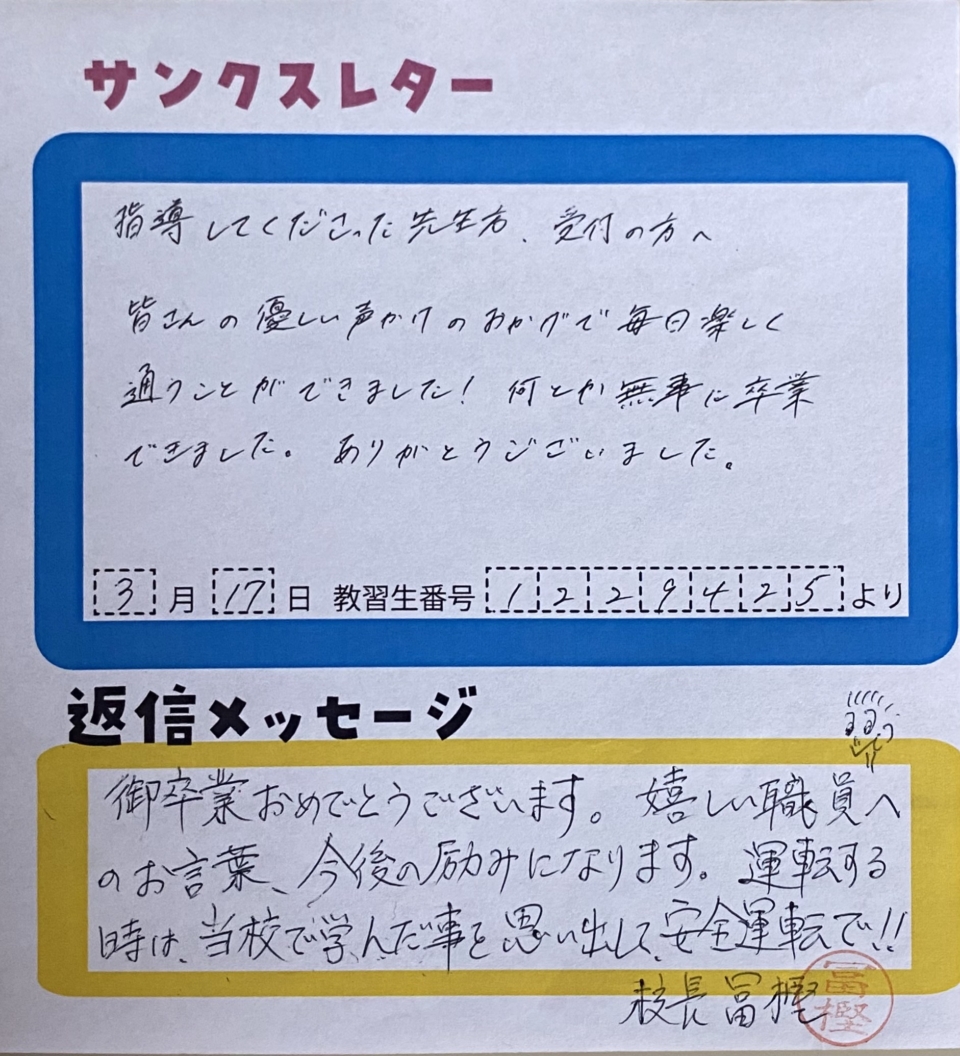 サンクスレター
指導してくださった先生方、受付の方へ
皆さんの優しい声かけのおかげで毎日楽しく
通うことができました! 何とか無事に卒業
できました。ありがとうございました。
3月17日 教習生番号 1229425より
返信メッセージ
御卒業おめでとうございます。嬉しい職員へ
のお言葉、今後の励みになります。運転する
時は、当校で学んだ事を思い出して、安全運転で!!
校長 冨樫
冨樫